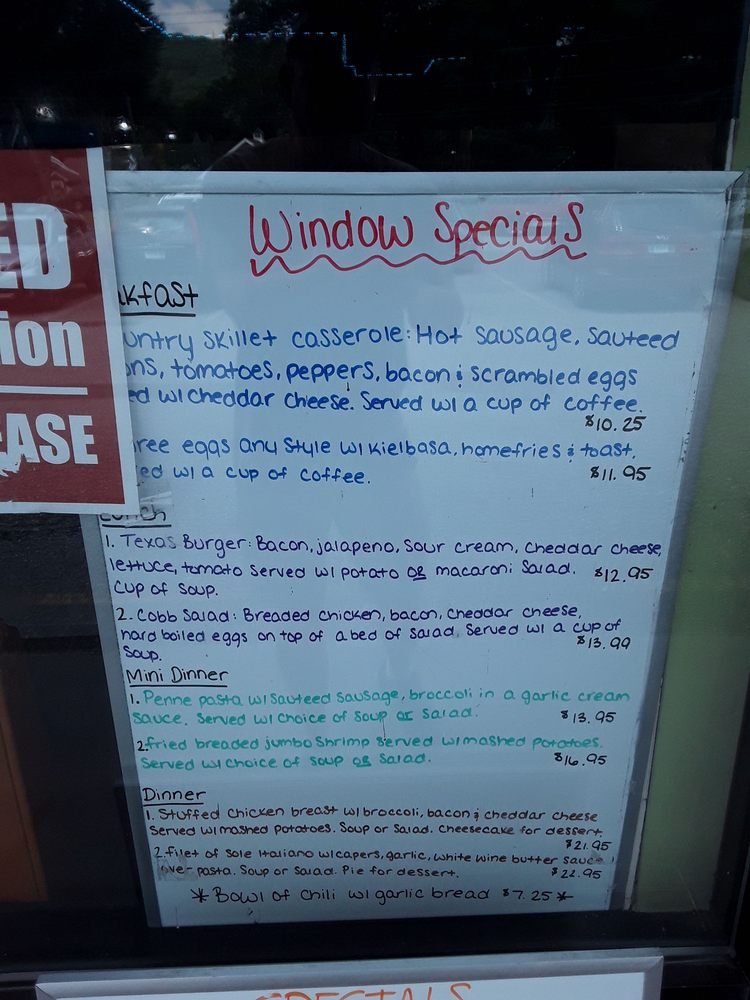 ED
ion
EASE
Window Specials
akfast
untry Skillet casserole: Hot sausage, sauteed
ons, tomatoes, peppers, bacon & scrambled eggs
ed w/ cheddar cheese. Served w/ a cup of coffee.
$10.25
hree eggs any style w/ Kielbasa, homefries & toast.
ed w/ a cup of coffee. $11.95
Lunch
1. Texas Burger: Bacon, jalapeno, sour cream, cheddar cheese,
lettuce, tomato served w/ potato or macaroni salad. $12.95
cup of soup.
2. Cobb Salad: Breaded chicken, bacon, cheddar cheese,
hard boiled eggs on top of a bed of salad. Served w/ a cup of
soup. $13.99
Mini Dinner
1. Penne pasta w/ sauteed sausage, broccoli in a garlic cream
sauce. Served w/ choice of soup or salad. $13.95
2. fried breaded jumbo shrimp served w/ mashed potatoes.
Served w/ choice of soup or salad. $16.95
Dinner
1. Stuffed chicken breast w/ broccoli, bacon & cheddar cheese
Served w/ mashed potatoes. Soup or Salad. Cheesecake for dessert.
$21.95
2. filet of Sole Italiano w/ capers, garlic, white wine butter sauce
over pasta. Soup or Salad. Pie for dessert. $22.95
* Bowl of Chili w/ garlic bread $7.25 *
SPECIALS